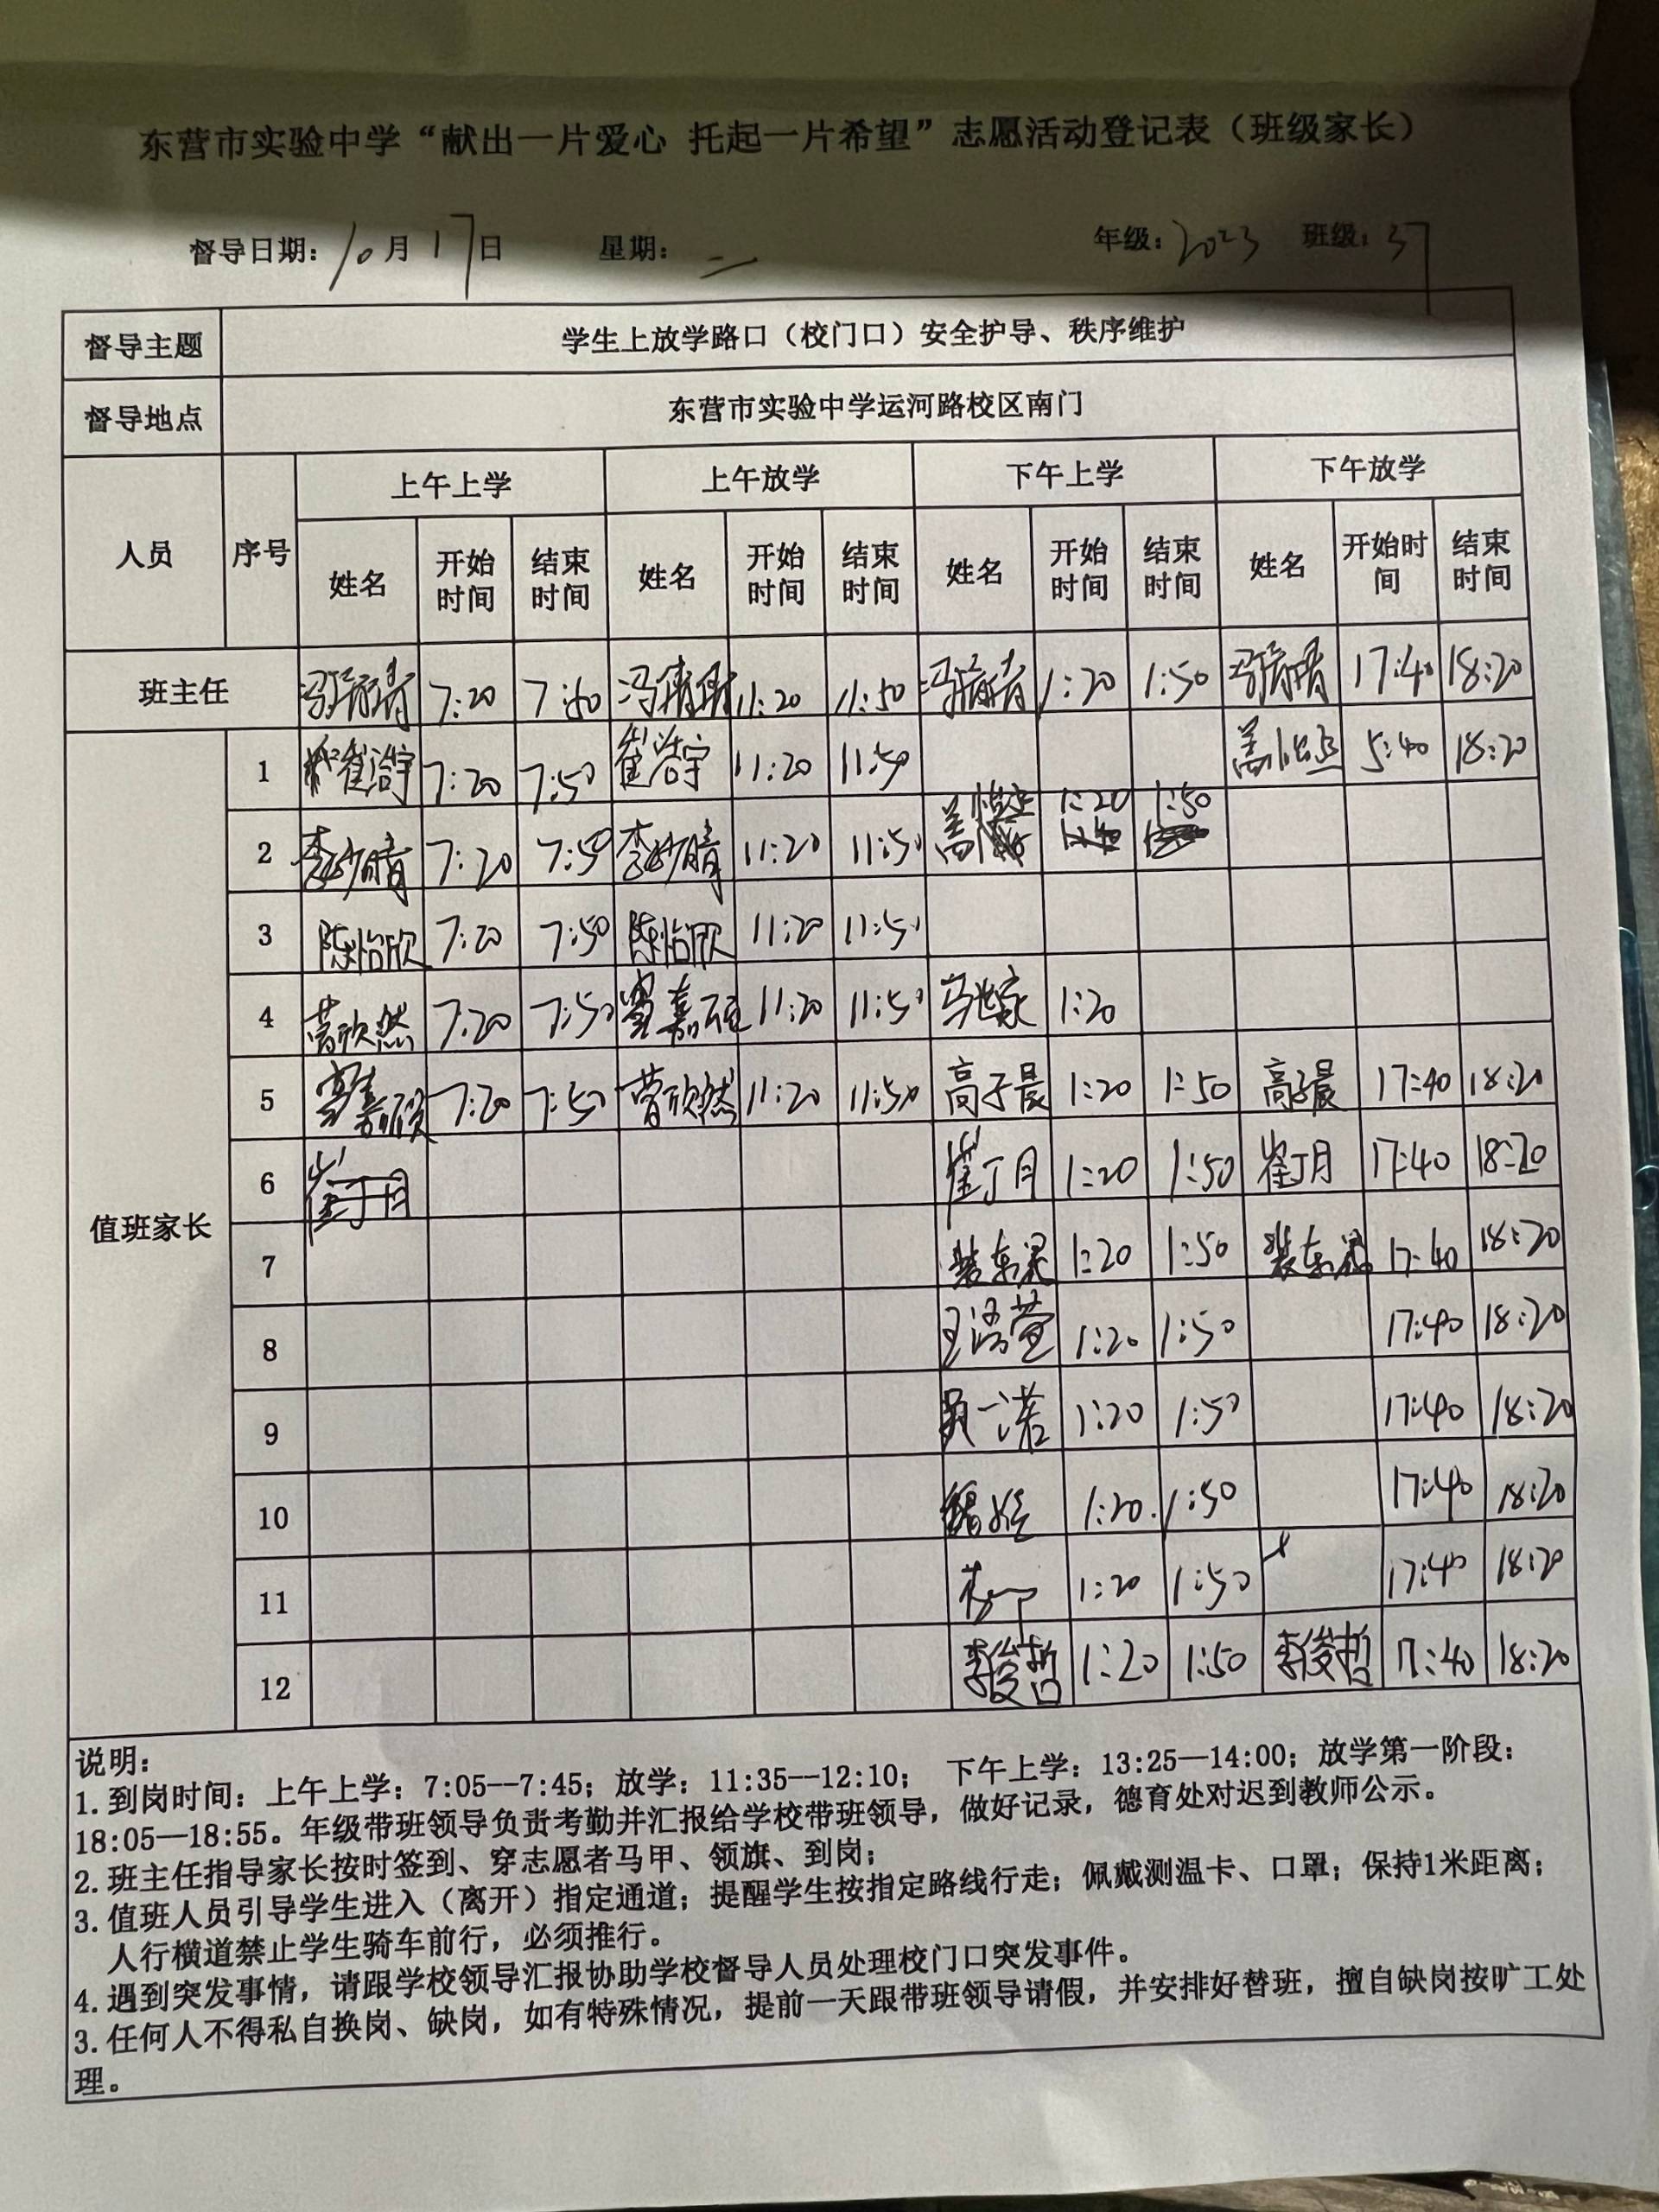 东营市实验中学“献出一片爱心 托起一片希望”志愿活动登记表（班级家长）
督导日期：10月17日 星期：二 年级：2023 班级：37
督导主题 学生上放学路口（校门口）安全护导、秩序维护
督导地点 东营市实验中学运河路校区南门
人员 序号 上午上学 上午放学 下午上学 下午放学
姓名 开始时间 结束时间 姓名 开始时间 结束时间 姓名 开始时间 结束时间 姓名 开始时间 结束时间
班主任 7:20 7:50 11:20 11:50 1:20 1:50 17:40 18:20
值班家长
1 崔浩宇 7:20 7:50 崔浩宇 11:20 11:50 5:40 18:20
2 李妙晴 7:20 7:50 李妙晴 11:20 11:50 1:20 1:50
3 陈怡欣 7:20 7:50 陈怡欣 11:20 11:50
4 7:20 7:50 11:20 11:50 1:20
5 7:20 7:50 11:20 11:50 高子晨 1:20 1:50 高子晨 17:40 18:20
6 崔丁月 崔丁月 1:20 1:50 崔丁月 17:40 18:20
7 1:20 1:50 17:40 18:20
8 1:20 1:50 17:40 18:20
9 一诺 1:20 1:50 17:40 18:20
10 1:20 1:50 17:40 18:20
11 1:20 1:50 17:40 18:20
12 李俊哲 1:20 1:50 李俊哲 17:40 18:20
说明：
1.到岗时间：上午上学：7:05--7:45；放学：11:35--12:10； 下午上学：13:25—14:00；放学第一阶段：
18:05—18:55。年级带班领导负责考勤并汇报给学校带班领导，做好记录，德育处对迟到教师公示。
2.班主任指导家长按时签到、穿志愿者马甲、领旗、到岗；
3.值班人员引导学生进入（离开）指定通道；提醒学生按指定路线行走；佩戴测温卡、口罩；保持1米距离；
人行横道禁止学生骑车前行，必须推行。
4.遇到突发事情，请跟学校领导汇报协助学校督导人员处理校门口突发事件。
3.任何人不得私自换岗、缺岗，如有特殊情况，提前一天跟带班领导请假，并安排好替班，擅自缺岗按旷工处
理。